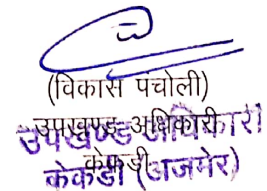 (विकास पंचोली)
उपखण्ड अधिकारी
उपखण्ड अधिकारी
केकड़ी
केकडी (अजमेर)